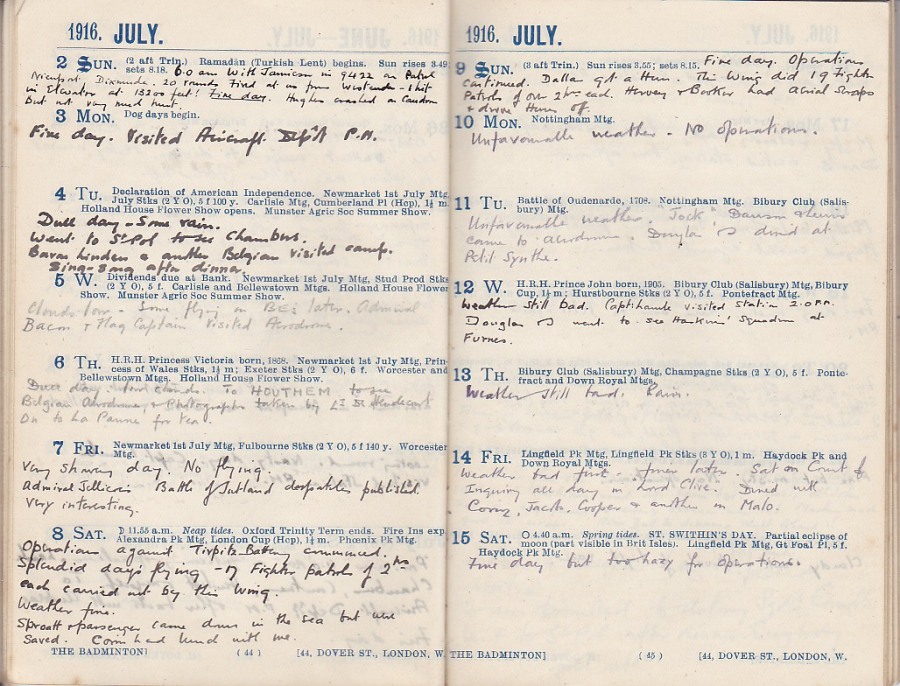 1916. JULY.
2 SUN. (2 aft Trin.) Ramadân (Turkish Lent) begins. Sun rises 3.49;
sets 8.18. 6.0 am With Jamieson in 9422 on Patrol
Nieuport, Dixmude. 20 rounds fired at us from Westende - 1 hit
in Elevator at 13200 feet! Fine day. Hughes crashed on Caudron
But not very much hurt.
3 MON. Dog days begin.
Fine day. Visited Aircraft Depôt P.M.
4 TU. Declaration of American Independence. Newmarket 1st July Mtg,
July Stks (2 Y O), 5 f 100 y. Carlisle Mtg, Cumberland Pl (Hcp), 1½ m
Holland House Flower Show opens. Munster Agric Soc Summer Show.
Dull day - Some rain.
Went to St Pol to see Chambers.
Baron Linden & another Belgian visited camp.
Sing-song after dinner.
5 W. Dividends due at Bank. Newmarket 1st July Mtg, Stud Prod Stks
(2 Y O), 5 f. Carlisle and Bellewstown Mtgs. Holland House Flower
Show. Munster Agric Soc Summer Show.
Clouds low - Some flying on BEs later. Admiral
Bacon & Flag Captain visited Aerodrome.
6 TH. H.R.H. Princess Victoria born, 1868. Newmarket 1st July Mtg, Prin-
cess of Wales Stks, 1½ m; Exeter Stks (2 Y O), 6 f. Worcester and
Bellewstown Mtgs. Holland House Flower Show.
Dull day. Low clouds. To HOUTHEM to see
Belgian Aerodrome, & Photographs taken by Lt
On to La Panne for tea.
7 FRI. Newmarket 1st July Mtg, Fulbourne Stks (2 Y O), 5 f 140 y. Worcester
Mtg.
Very showery day. No flying.
Admiral Jellicoe's Battle of Jutland despatches published.
Very interesting.
8 SAT. ☽ 11.55 a.m. Neap tides. Oxford Trinity Term ends. Fire Ins exp.
Alexandra Pk Mtg, London Cup (Hcp), 1½ m. Phœnix Pk Mtg.
Operations against Tirpitz Battery commenced.
Splendid days flying - 17 Fighter patrols of 2 hrs
each carried out by this Wing.
Weather fine.
Sproatt & passenger came down in the sea but were
saved. Corin had lunch with me.
THE BADMINTON] ( 44 ) [44, DOVER ST., LONDON, W.
1916. JULY.
9 SUN. (3 aft Trin.) Sun rises 3.55; sets 8.15. Fine day. Operations
continued. Dallas got a Hun. The Wing did 19 Fighter
Patrols of over 2 hrs each. Hervey & Booker had Aerial Scraps
& drove Huns off.
10 MON. Nottingham Mtg.
Unfavourable weather. No operations.
11 TU. Battle of Oudenarde, 1708. Nottingham Mtg. Bibury Club (Salis-
bury) Mtg.
Unfavourable weather. "Jock" Dawson & Lewis
came to Aerodrome. Douglas & I dined at
Petit Synthe.
12 W. H.R.H. Prince John born, 1905. Bibury Club (Salisbury) Mtg, Bibury
Cup, 1½ m; Hurstbourne Stks (2 Y O), 5 f. Pontefract Mtg.
Weather still bad. Capt visited Station 2.0 P.M.
Douglas & I went to see Haskins' Squadron at
Furnes.
13 TH. Bibury Club (Salisbury) Mtg, Champagne Stks (2 Y O), 5 f. Ponte-
fract and Down Royal Mtgs.
Weather still bad. Rain.
14 FRI. Lingfield Pk Mtg, Lingfield Pk Stks (3 Y O), 1 m. Haydock Pk and
Down Royal Mtgs.
Weather bad first - finer later. Sat on Court of
Inquiry all day in Lord Clive. Dined with
Corry, Jacob, Cooper & another in Malo.
15 SAT. ○ 4.40 a.m. Spring tides. ST. SWITHIN'S DAY. Partial eclipse of
moon (part visible in Brit Isles). Lingfield Pk Mtg, Gt Foal Pl, 5 f.
Haydock Pk Mtg.
Fine day but too hazy for operations.
THE BADMINTON] ( 45 ) [44, DOVER ST., LONDON, W.